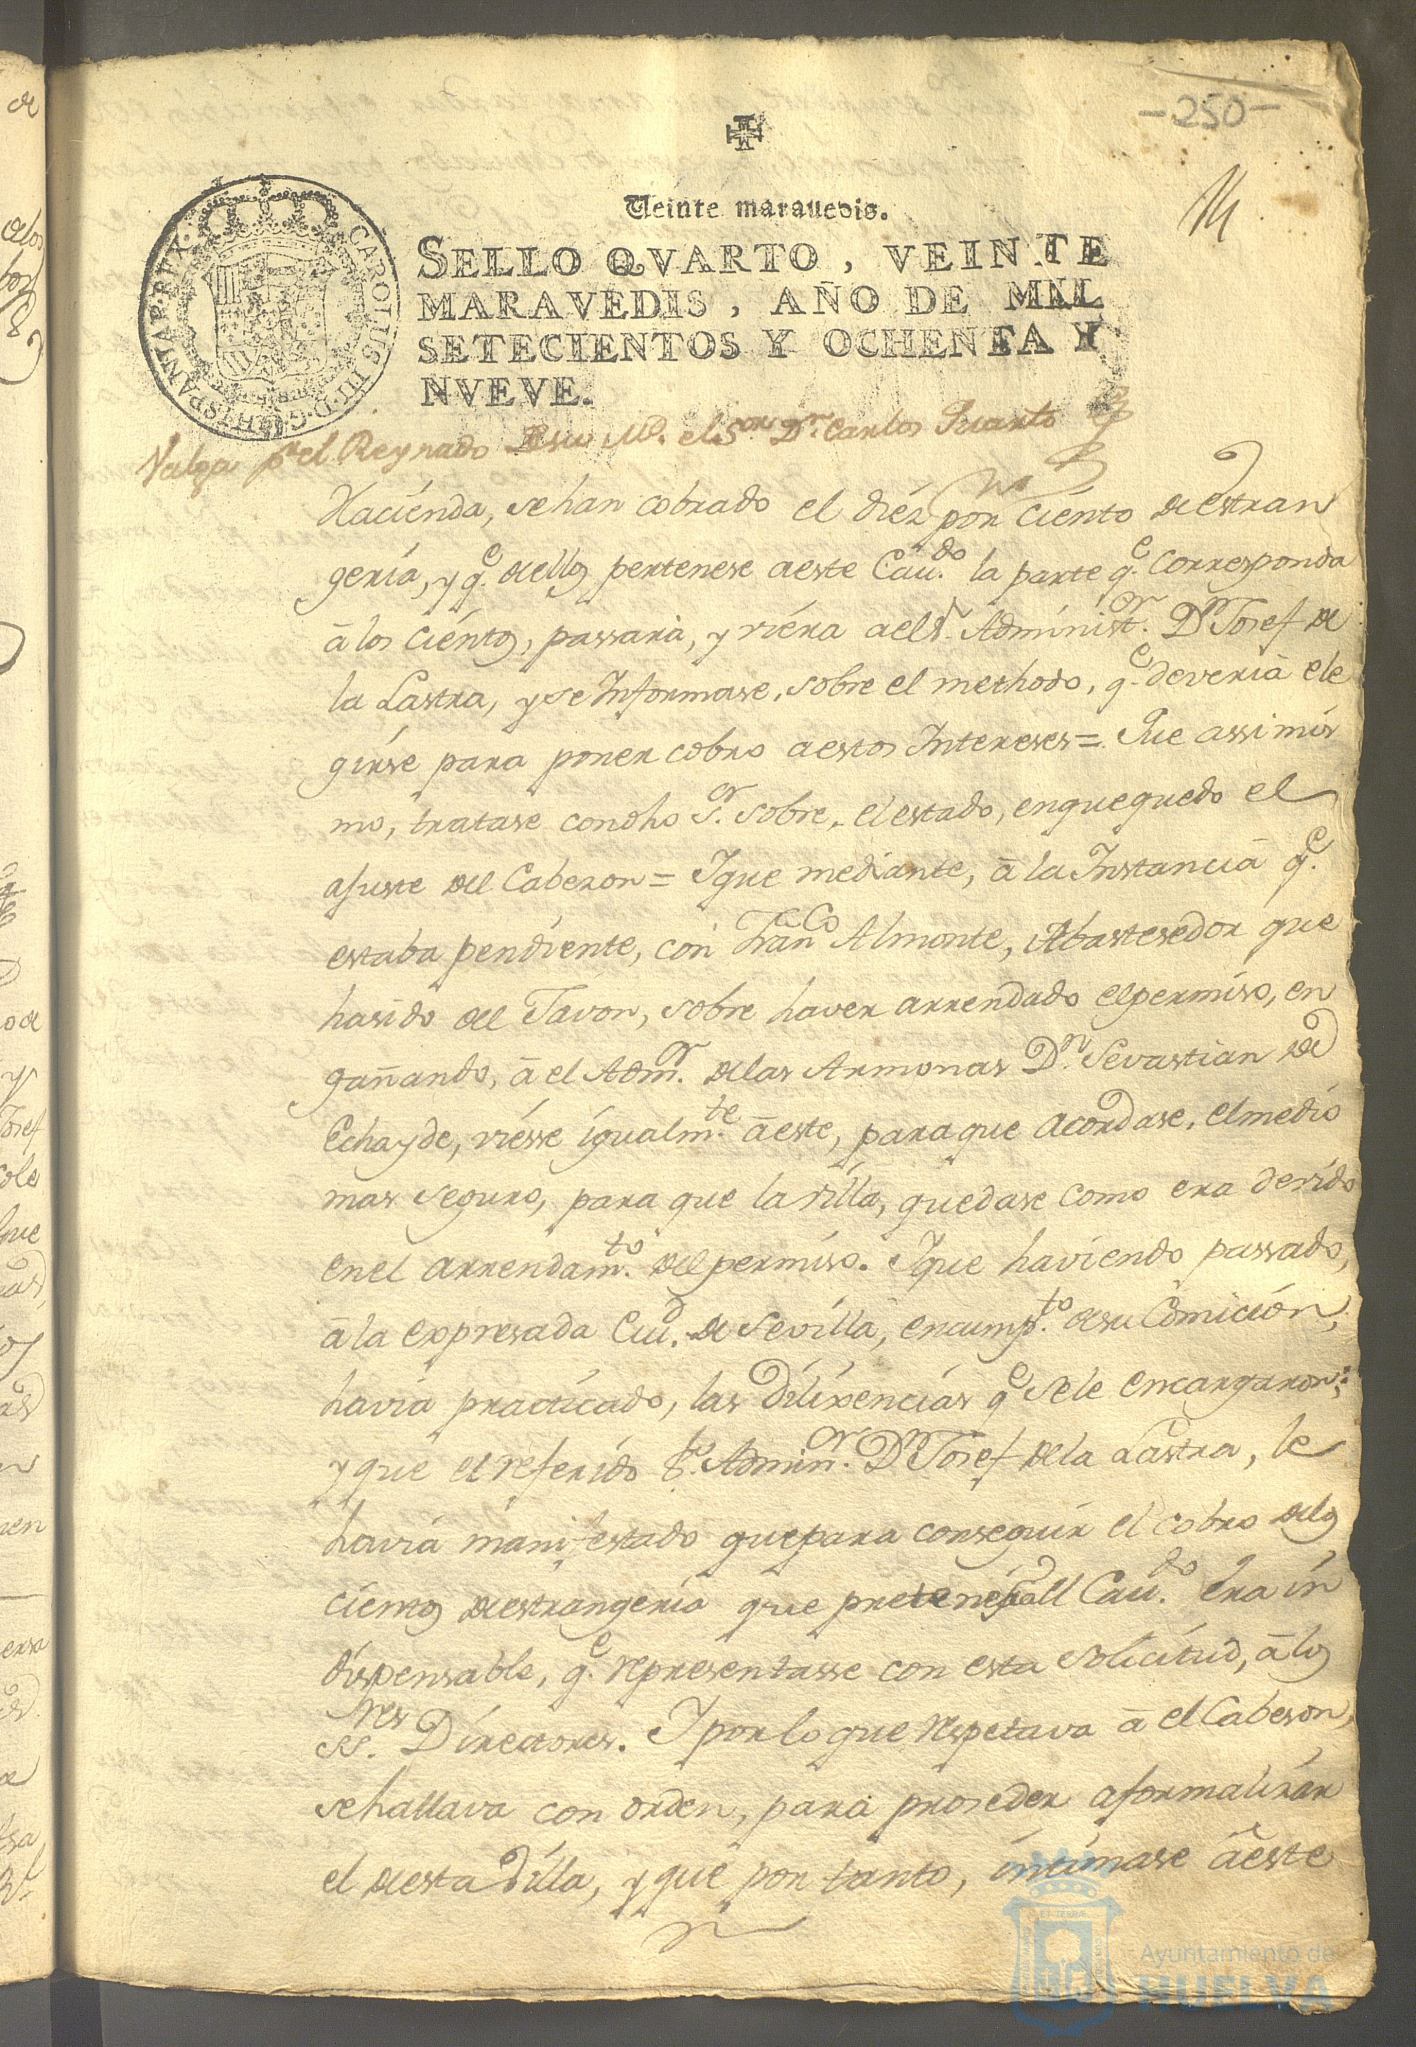 -250-
Veinte marauedis.
SELLO QVARTO, VEINTE
MARAVEDIS, AÑO DE MIL
SETECIENTOS Y OCHENTA Y
NVEVE.
CAROLUS III D G HISPANIAR REX
Valga pr el Reynado de su Md. el Sor Dn Carlos Quarto
Hacienda, se han cobrado el diéz por Ciénto de estran
geria, y qe. de ellos pertenese a este Cau.do la parte qe. Corresponda
â los Ciéntos, passaria, y viéra a el Sr. Administ.or Dn Josef de
la Lastra, y se Informase, sobre el methodo, qe. deveria ele
girse para poner cobro a estos Intereses = Que assimis
mo, tratase con dho S.or sobre, el estado, en que quedo el
ajuste del Cabezon = Y que mediante, â la Instancia qe.
estaba pendiente, con Franco Almonte, Abastesedor que
ha sido del Javon, sobre haver arrendado el permiso, en
gañando, â el Adm.or de las Armonas Dn. Sevastian de
Echayde, viésse igualm.te â este, para que acordase, el medio
mas seguro, para que la villa, quedase como era devido
en el arrendam.to del permiso. Y que haviendo passado,
â la expresada Ciud. de Sevilla, en cump.to de su Comición,
havia practicado, las dilixencias qe se le encargaron:
y que el referido Sr. Admin.or Dn Josef de la Lastra, le
havia manifestado que para conseguir el cobro de los
cientos de estrangeria que el Cau.do era in
dispensable, qe. representasse con esta solicitud, â los
SS.res Directores. Y por lo que respetava â el Cabeson,
se hallava con orden, para proseder a formalizar
el de esta Villa, y que por tanto, intimase â este
Ayuntamiento de
HUELVA